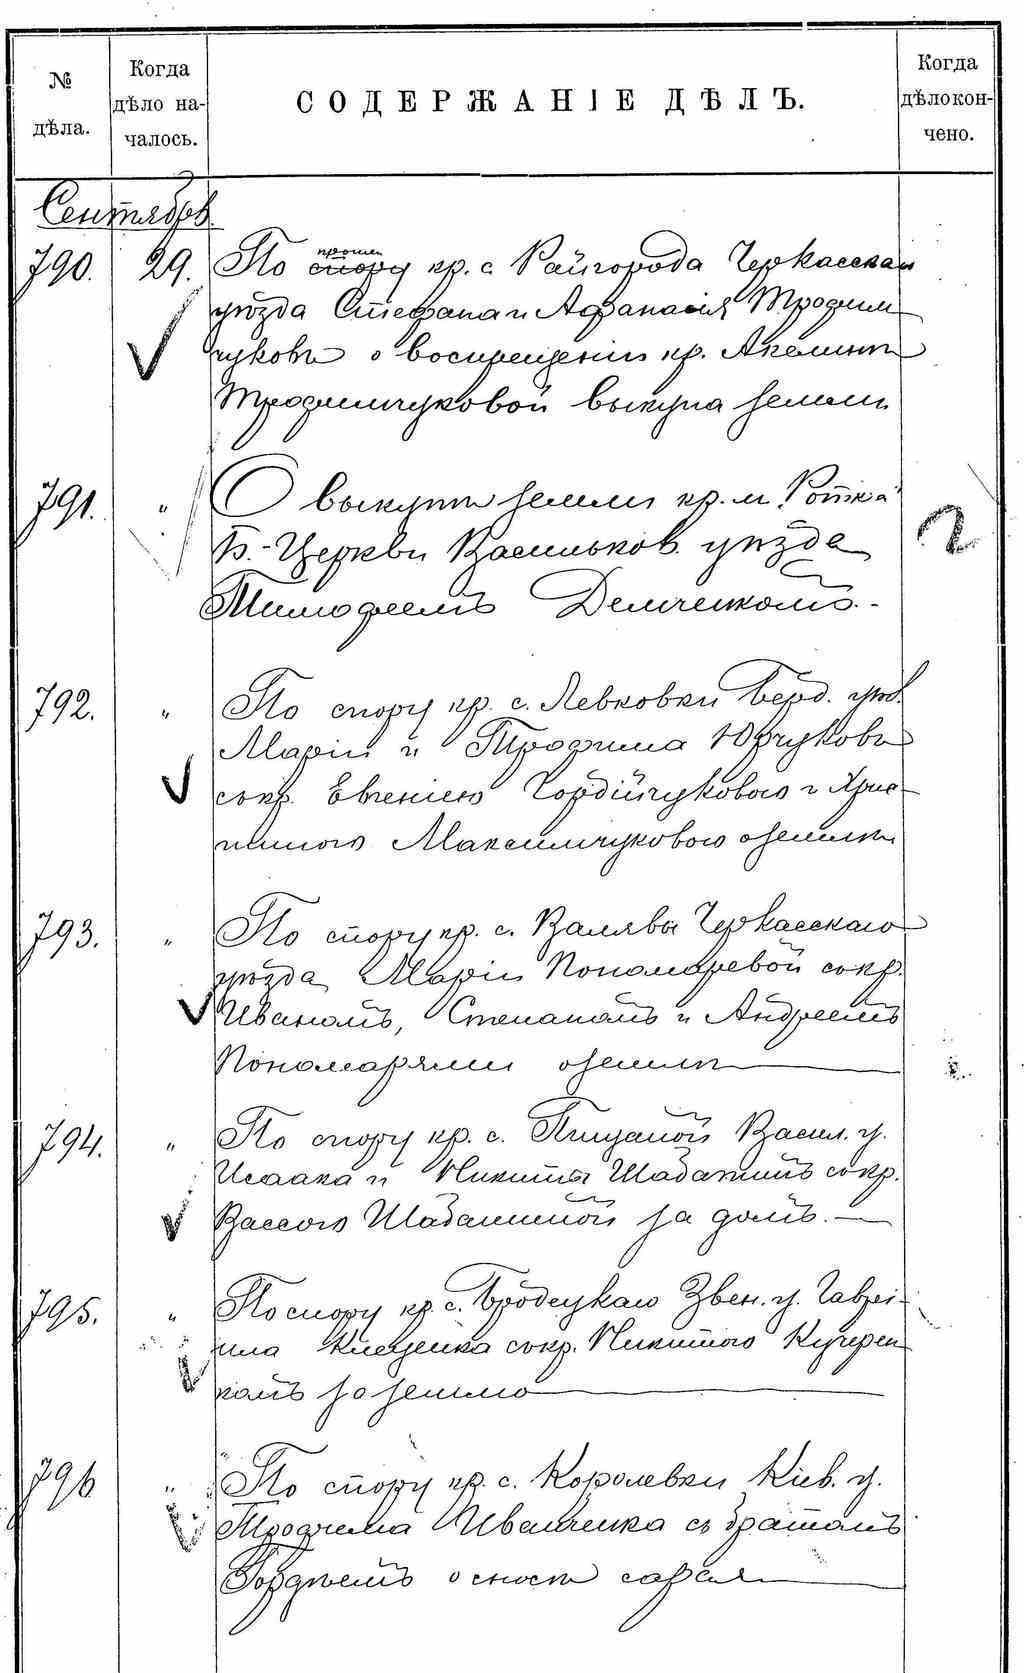 № дѣла.
Когда дѣло на-
чалось.
СОДЕРЖАНІЕ ДѢЛЪ.
Когда дѣло кон-
чено.
Сентябрь
790. 29. По спору прош. кр. с. Райгорода Черкасскаго
уѣзда Стефана и Афанасія Трофим-
чуковъ о воспрещеніи кр. Акелинѣ
Трофимчуковой выкупа земли
791. " О выкупѣ земли кр. м.
Б.-Церкви Васильков. уѣзда
Тимофеемъ
792. " По спору кр. с. Левковки Берд. уѣз.
Маріи и Трофима Юрчуковъ
съ кр. Евгеніею Гордійчуковою и Хрис-
тиною Максимчуковою о земли
793. " По спору кр. с. Валявы Черкасскаго
уѣзда Маріи Пономаревой съ кр.
Иваномъ, Степаномъ и Андреемъ
Пономарями о земли
794. " По спору кр. с. Пищаной Васил. у.
Исаака и Никиты съ кр.
Вассою за домъ.
795. " По спору кр. с. Бродецкаго Звен. у. Гаврі-
ила Клещенка съ кр. Никитою Кучерен-
комъ за землю
796 " По спору кр. с. Королевки Кіев. у.
Трофима Иванченка съ братомъ
Гордѣемъ о сносѣ сарая